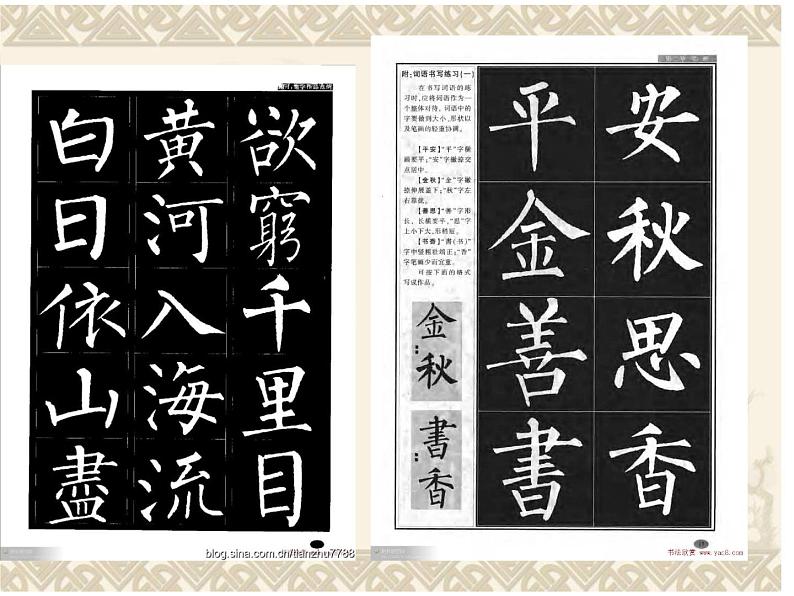 白日依山盡
黄河入海流
欲窮千里目
附:词语书写练习(一)
在书写词语的练
习时,应将词语作为一
个整体对待,词语中的
字要做到大小、形状以
及笔画的轻重协调。
【平安】“平”字横
画要平;“安”字撇捺交
点居中。
【金秋】“金”字撇
捺伸展盖下;“秋”字左
右靠拢。
【善思】“善”字形
长,长横要平,“思”字
上小下大,形稍短。
【书香】“書(书)”
字中竖粗壮端正;“香”
字笔画少而宜重。
可按下面的格式
写成作品。
金秋
書香
平安
金秋
善思
書香
blog.sina.com.cn/tianzhu7788
书法欣赏 www.yac8.com